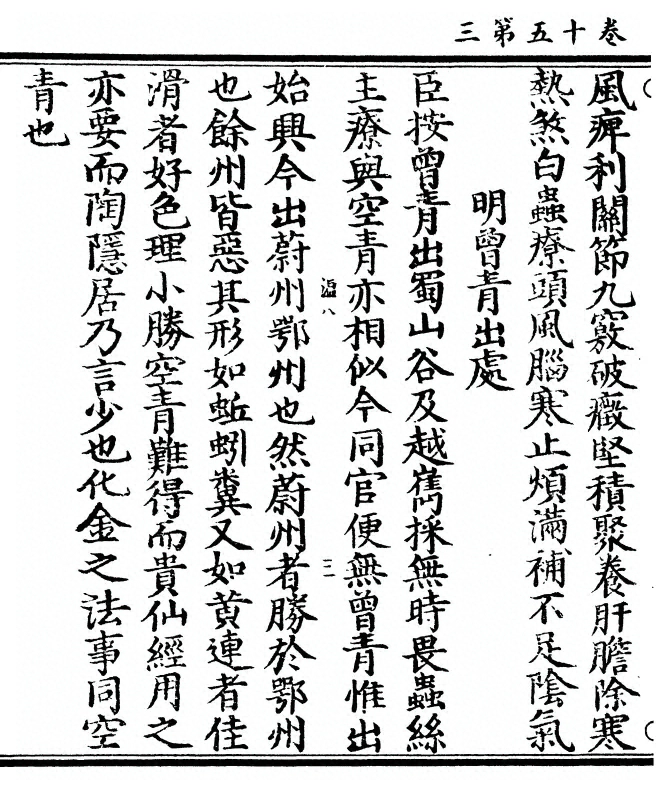 三第五十卷
風痺利關節九竅破癥堅積聚養肝膽除寒
熱煞白蟲療頭風腦寒止煩滿補不足陰氣
明曾青出處
臣按曾青出蜀山谷及越嶲採無時畏蟲絲
主療與空青亦相似今同官便無曾青惟出
溫八
三
始興今出蔚州鄂州也然蔚州者勝於鄂州
也餘州皆惡其形如蚯蚓糞又如黃連者佳
滑者好色理小勝空青難得而貴仙經用之
亦要而陶隱居乃言少也化金之法事同空
青也